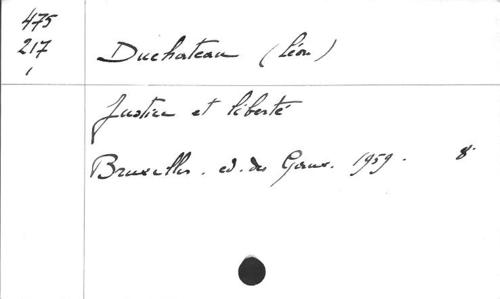 475
217
1
Duchateau (Léon)
Justice et liberté
Bruxelles. ed. du Gaux. 1959. 8°